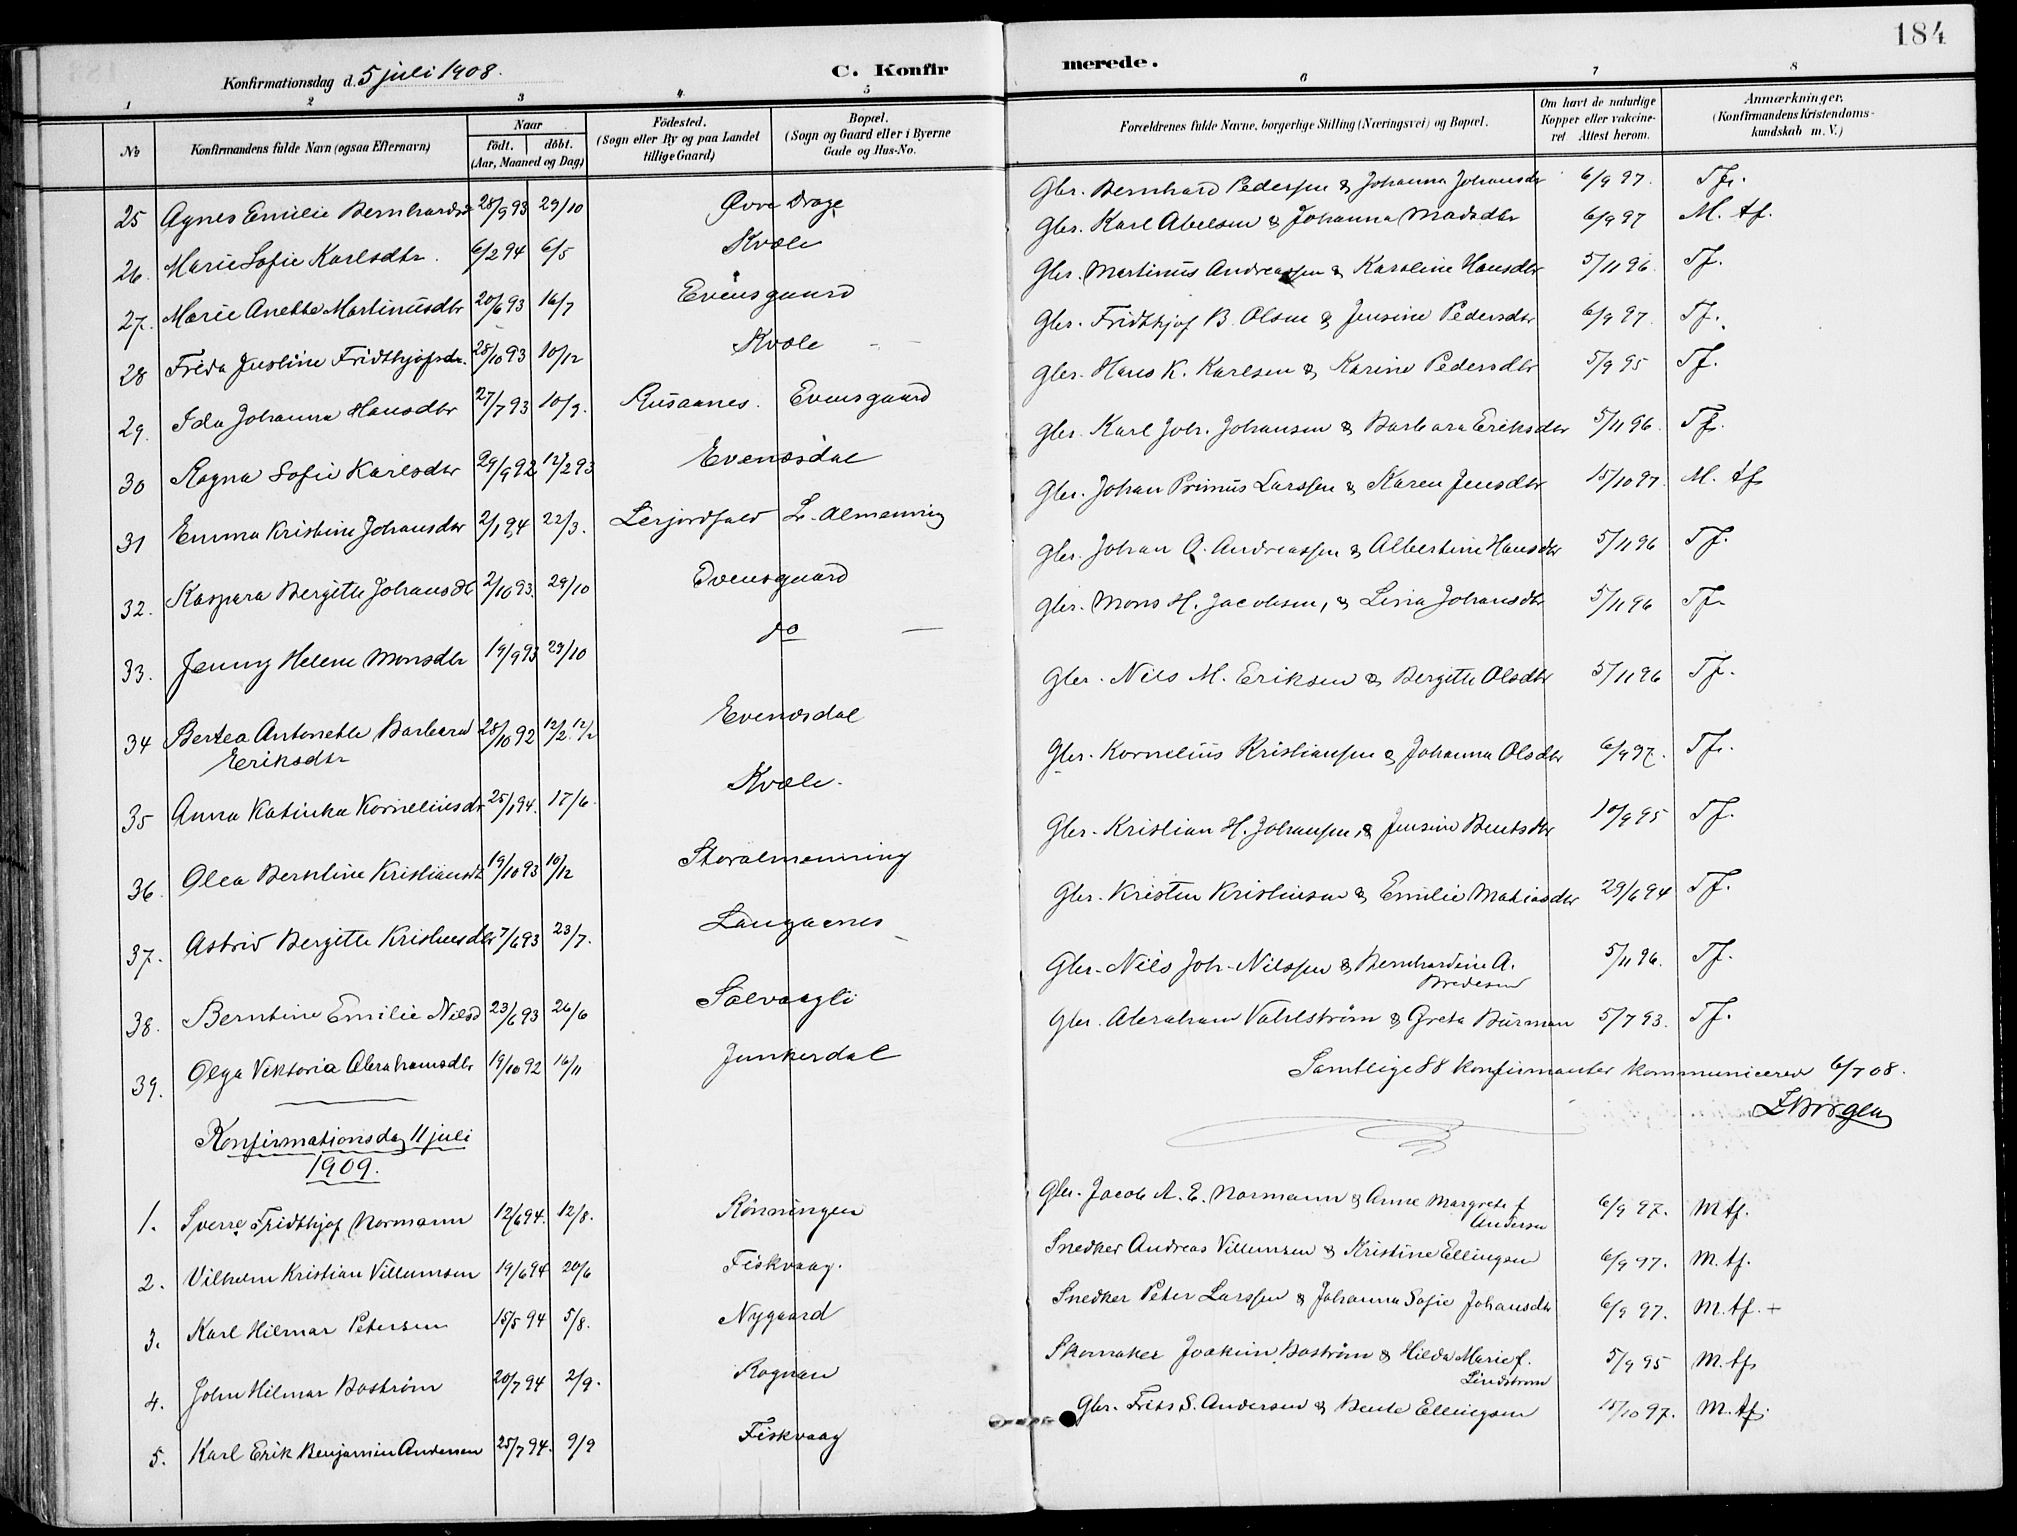 184
Konfirmationsdag d. 5 juli 1908.
C. Konfirmerede.
1 2 3 4 5 6 7 8
№ Konfirmandens fulde Navn (ogsaa Efternavn) Naar født. døbt. (Aar, Maaned og Dag) Fødested. (Sogn eller By og paa Landet tillige Gaard) Bopæl. (Sogn og Gaard eller i Byerne Gade og Hus-No. Forældrenes fulde Navne, borgerlige Stilling (Næringsvei) og Bopæl. Om havt de naturlige Kopper eller vakcineret Attest herom. Anmærkninger. (Konfirmandens Kristendomskundskab m. V.)
25 Agnes Emilie Bernhardsd 28/9 93 29/10 Øvre Drage Gbr. Bernhard Pedersen & Johanna Johansdtr 6/9 97. Tf.
26. Marie Sofie Karlsdtr. 6/2 94 6/5 Kvæle Gbr. Karl Abelsen & Johanna Madsdtr 6/9 97 M. tf.
27. Marie Anette Martinusdtr 20/6 93 16/7 Evensgaard Gbr. Martinus Andreassen & Karoline Hansdtr 5/11 96. Tf.
28 Frida Justine Fridthjofsdr. 25/10 93 10/12 Kvæle Gbr. Fridthjof B. Olsen & Jensine Pedersdtr 6/9 97. Tf.
29. Ida Johanna Hansdtr 27/7 93 10/9. Rusaanes. Evensgaard Gbr. Hans K. Karlsen & Karine Pedersdtr 5/9 95 Tf.
30 Ragna Sofie Karlsdtr 29/9 92 12/2 93 Evenesdal Gbr. Karl Joh. Johansen & Barbara Eriksdtr 5/11 96. Tf.
31 Emma Kristine Johansdtr 2/1 94 22/3. Lerjordfald L. Almenning Gbr. Johan Primus Larssen & Karen Jensdtr 15/10 97. M. tf
32. Kaspara Bergitte Johansdtr 2/10 93. 29/10 Evensgaard Gbr. Johan O. Andreassen & Albertine Hansdtr 5/11 96 Tf.
33. Jenny Helene Monsdtr 19/9 93 29/10 do Gbr. Mons H. Jacobsen, & Lina Johansdtr 5/11 96 Tf
34 Bertea Antonette Barbara Eriksdtr 28/10 92 12/2 Evenesdal Gbr. Nils M. Eriksen & Bergitte Olsdtr 5/11 96 Tf.
35 Anna Katinka Korneliusdtr 25/1 94. 17/6. Kvæle. Gbr. Kornelius Kristiansen & Johanna Olsdtr 6/9 97. Tf.
36. Olea Berntine Kristiansdtr 19/10 93 10/12 Storalmenning Gbr. Kristian H. Johansen, & Jensine Bentsdtr 10/9 95 Tf.
37. Astrid Bergitte Kristensdtr 7/6 93 23/7. Langaenes Gbr. Kristen Kristensen & Emilie Matiasdtr 29/6 94 Tf.
38. Berntine Emilie Nilsd 23/6 93 26/6 Sølvaagli Gbr. Nils Joh. Nilssen & Bernhardine A. Bredesen 5/11 96. Tf.
39. Olga Viktoria Abrahamsdtr 19/10 92 16/11 Junkerdal Gbr. Abraham Vahlstrøm & Greta Burman 5/7 93. Tf.
Samtlige 88 konfirmanter kommunicered 6/7 08.
Konfirmationsdag 11 juli
1909.
1. Sverre Fridthjof Normann 12/6 94. 12/8. Rønningen Gbr. Jacob A. E. Normann & Anne Margrete f Andersen 6/9 97. M tf.
2. Vilhelm Kristian Villumsen 19/6 94 20/6 Fiskvaag. Snedker Andreas Villumsen & Kristine Ellingsen 6/9 97. M. tf.
3. Karl Hilmar Petersen 15/5 94 5/8. Nygaard Snedker Peter Larssen & Johanna Sofie Johansdtr 6/9 97. M. tf. +
4. John Hilmar Bostrøm 20/7 94 2/9. Rognan Skomaker Joakim Bostrøm & Hilda Marie f. Lindstrøm 5/9 95 M. tf.
5. Karl Erik Benjamin Andersen 25/7 94. 9/9 Fiskvaag Gbr. Frits S. Andersen & Bente Ellingsen 15/10 97. M. tf.